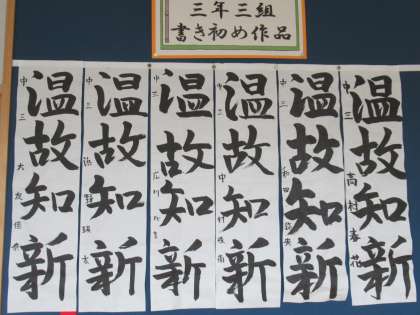 三年三組
書き初め作品
温故知新
中三
温故知新
中三
温故知新
中三
温故知新
中三
温故知新
中三 和田
温故知新
中三 高村春花